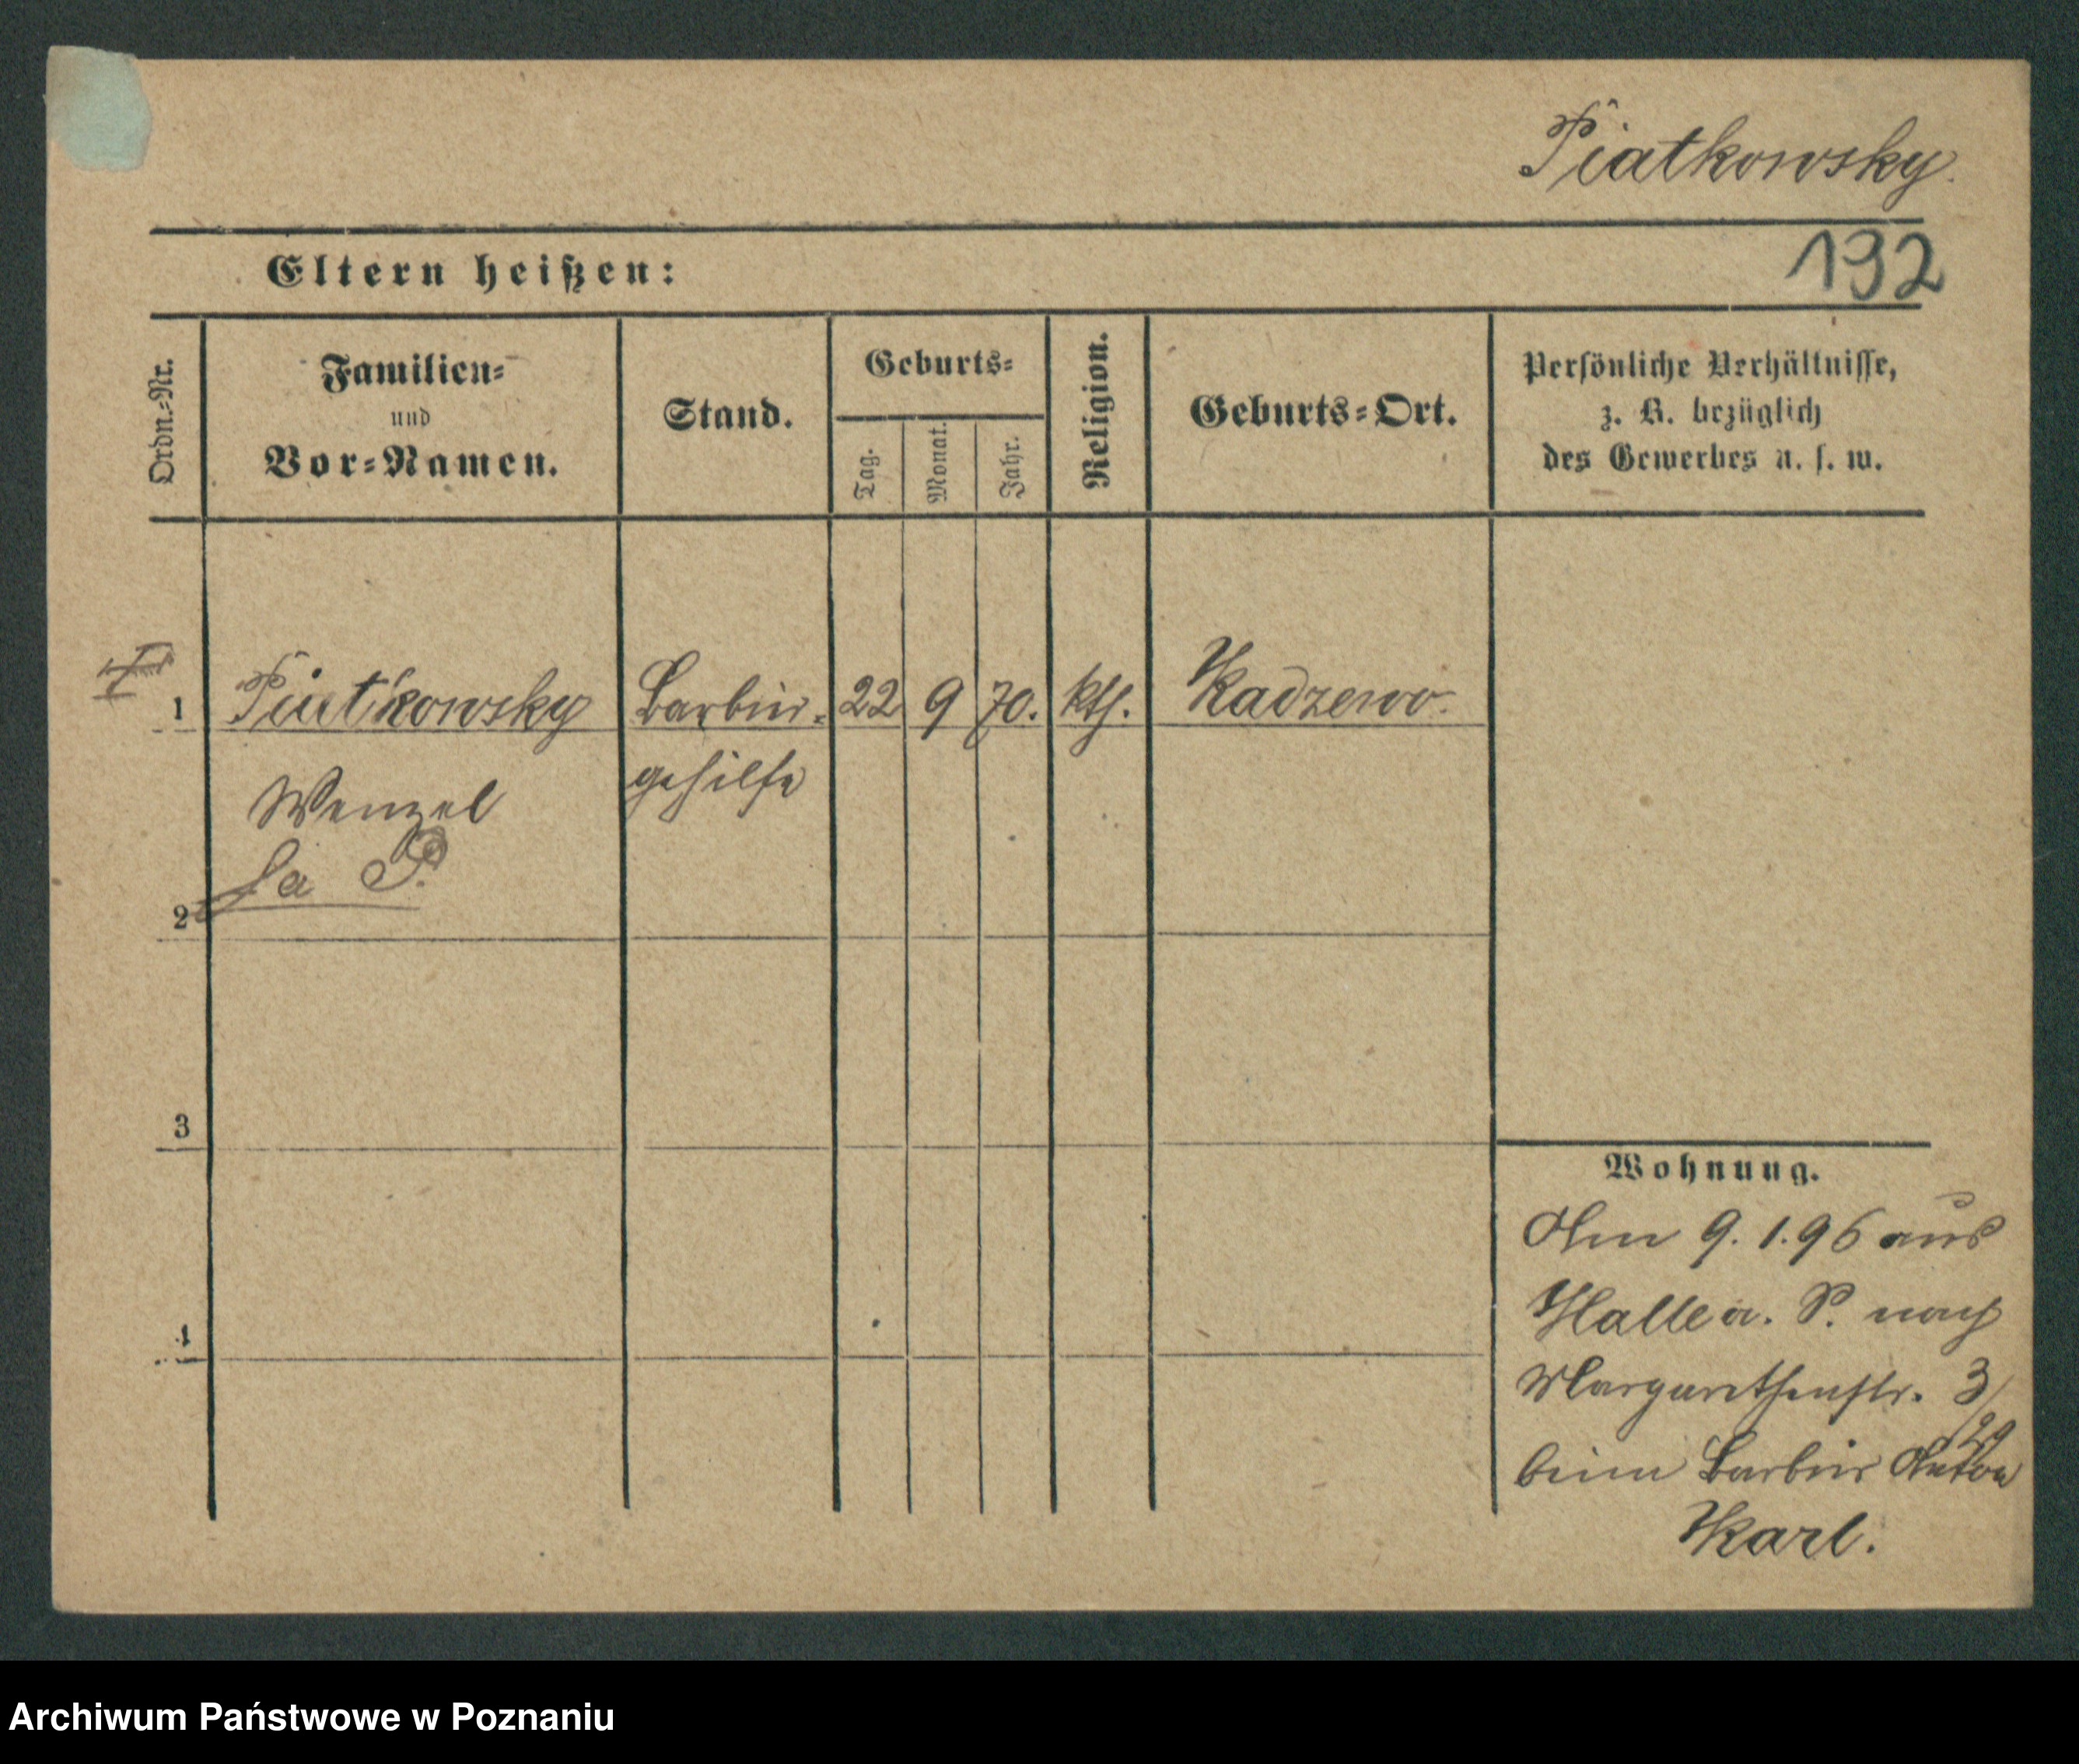 Piatkowsky.
192
Eltern heißen:
Ordn.-Nr.
Familien-
und
Vor-Namen.
Stand.
Geburts-
Tag.
Monat.
Jahr.
Religion.
Geburts-Ort.
Persönliche Verhältnisse,
z. B. bezüglich
des Gewerbes u. s. w.
1
Piatkowsky
Barbier-
22
9
70.
kth.
Kadzewo.
Wenzel
gehilfe
2
3
4
Wohnung.
Am 9. 1. 96 aus
Halle a. S. nach
Margarethenstr. 3/
beim Barbier Anton
Karl.
Archiwum Państwowe w Poznaniu